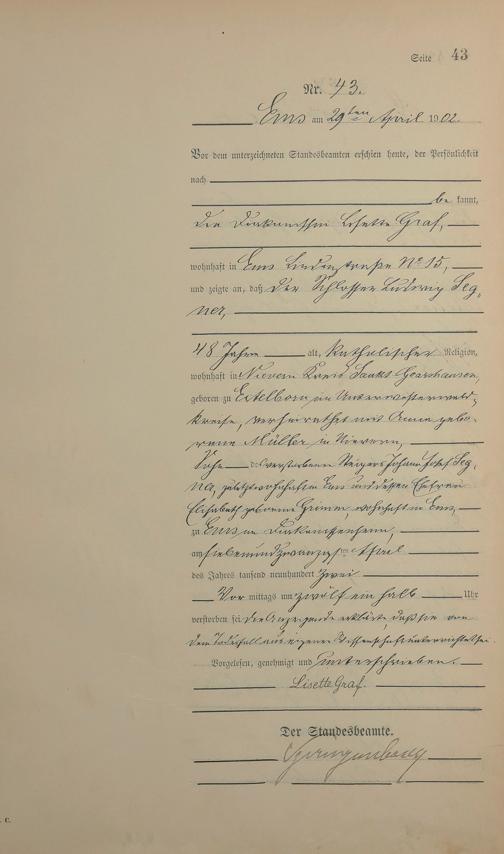 Seite 43
Nr. 43.
Ems am 29ten April 1902.
Vor dem unterzeichneten Standesbeamten erschien heute, der Persönlichkeit
nach
be kannt,
die Diakonissin Lisette Graf,
wohnhaft in Ems Lindenstraße No 15,
und zeigte an, daß der Schlosser Ludwig Seg-
ner,
48 Jahre alt, katholischer Religion,
wohnhaft in Nievern Kreis Sankt Goarshausen,
geboren zu Eitelborn im Unterwesterwald-
kreise, verheirathet mit Anna gebo-
rene Müller in Nievern,
Sohn des verstorbenen Steigers Johann Josef Seg-
ner, zuletzt wohnhaft in Ems und dessen Ehefrau
Elisabeth geborene Grimm, wohnhaft in Ems,
zu Ems im Diakonissenheim,
am siebenundzwanzigsten April
des Jahres tausend neunhundert zwei
Vor mittags um zwölf ein halb Uhr
verstorben sei. Die Anzeigende erklärte, daß sie von
dem Todesfall aus eigener Wissenschaft unterrichtet sei.
Vorgelesen, genehmigt und unterschrieben.
Lisette Graf.
Der Standesbeamte.
C.